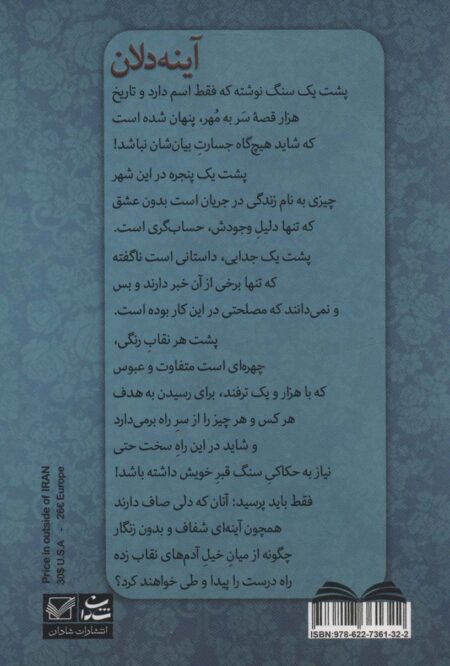 آینه‌دلان
پشت یک سنگ نوشته که فقط اسم دارد و تاریخ
هزار قصهٔ سَر به مُهر، پنهان شده است
که شاید هیچ‌گاه جسارتِ بیان‌شان نباشد!
پشت یک پنجره در این شهر
چیزی به نام زندگی در جریان است بدون عشق
که تنها دلیلِ وجودش، حساب‌گری است.
پشت یک جدایی، داستانی است ناگفته
که تنها برخی از آن خبر دارند و بس
و نمی‌دانند که مصلحتی در این کار بوده است.
پشت هر نقابِ رنگی،
چهره‌ای است متفاوت و عبوس
که با هزار و یک ترفند، برای رسیدن به هدف
هر کس و هر چیز را از سرِ راه برمی‌دارد
و شاید در این راهِ سخت حتی
نیاز به حکاکیِ سنگ قبرِ خویش داشته باشد!
فقط باید پرسید: آنان که دلی صاف دارند
همچون آینه‌ای شفاف و بدون زنگار
چگونه از میانِ خیلِ آدم‌های نقاب زده
راه درست را پیدا و طی خواهند کرد؟
Price in outside of IRAN
30$ U.S.A - 26€ Europe
شادان
انتشارات شادان
ISBN:978-622-7361-32-2